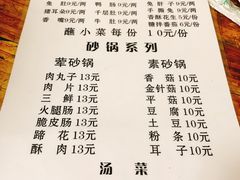 兔肚9元/两 鸭肠9元/两 兔肝子9元/两
猪耳朵9元/两 千层肚9元/两 牛肉9元/两
香嘴9元/两 牛肚9元/两 香酥花生5元/份
蘸小菜每份10元/份
砂锅系列
荤砂锅 素砂锅
肉丸子13元 香菇10元
肉片13元 金针菇10元
三鲜13元 平菇10元
火腿肠13元 豆腐10元
脆皮肠13元 土豆10元
蹄花13元 粉条10元
酥肉13元 耳子10元
汤菜